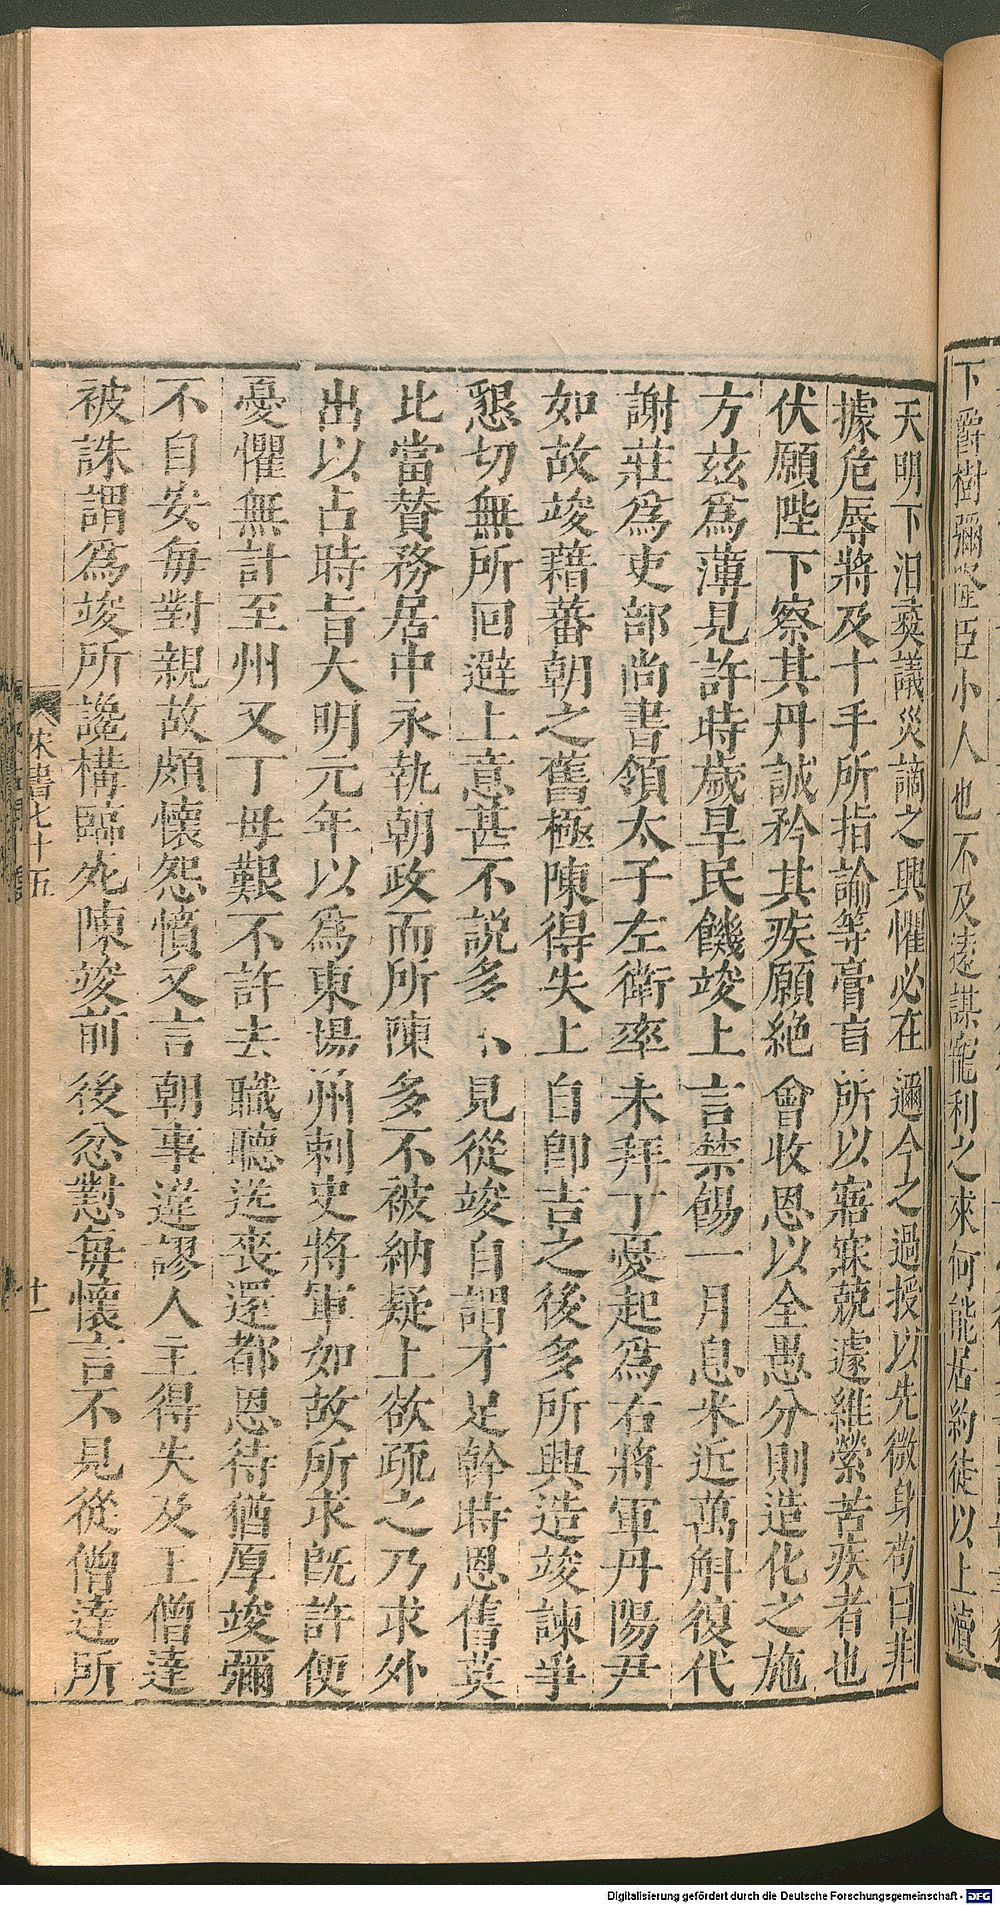 下爵樹彌隆臣小人也不及遠謀寵利之來何能居約徒以上瀆
天明下汨彝議災謫之興懼必在邇今之過授以先微身茍曰非
據危辱將及十手所指諭等膏肓所以寤寐兢遽維縈苦疾者也
伏願陛下察其丹誠矜其疾願絶會收恩以全愚分則造化之施
方玆爲薄見許時歲旱民饑竣上言禁餳一月息米近萬斛復代
謝莊爲吏部尚書領太子左衛率未拜丁憂起爲右將軍丹陽尹
如故竣藉蕃朝之舊極陳得失上自卽吉之後多所興造竣諫爭
懇切無所回避上意甚不說多不見從竣自謂才足幹時恩舊莫
比當贊務居中永執朝政而所陳多不被納疑上欲疏之乃求外
出以占時旨大明元年以爲東揚州刺史將軍如故所求旣許便
憂懼無計至州又丁母艱不許去職聽送喪還都恩待猶厚竣彌
不自安每對親故頗懷怨憤又言朝事違謬人主得失及王僧達
被誅謂爲竣所讒構臨死陳竣前後忿懟每懷言不見從僧達所
宋書七十五
十一
Digitalisierung gefördert durch die Deutsche Forschungsgemeinschaft - DFG